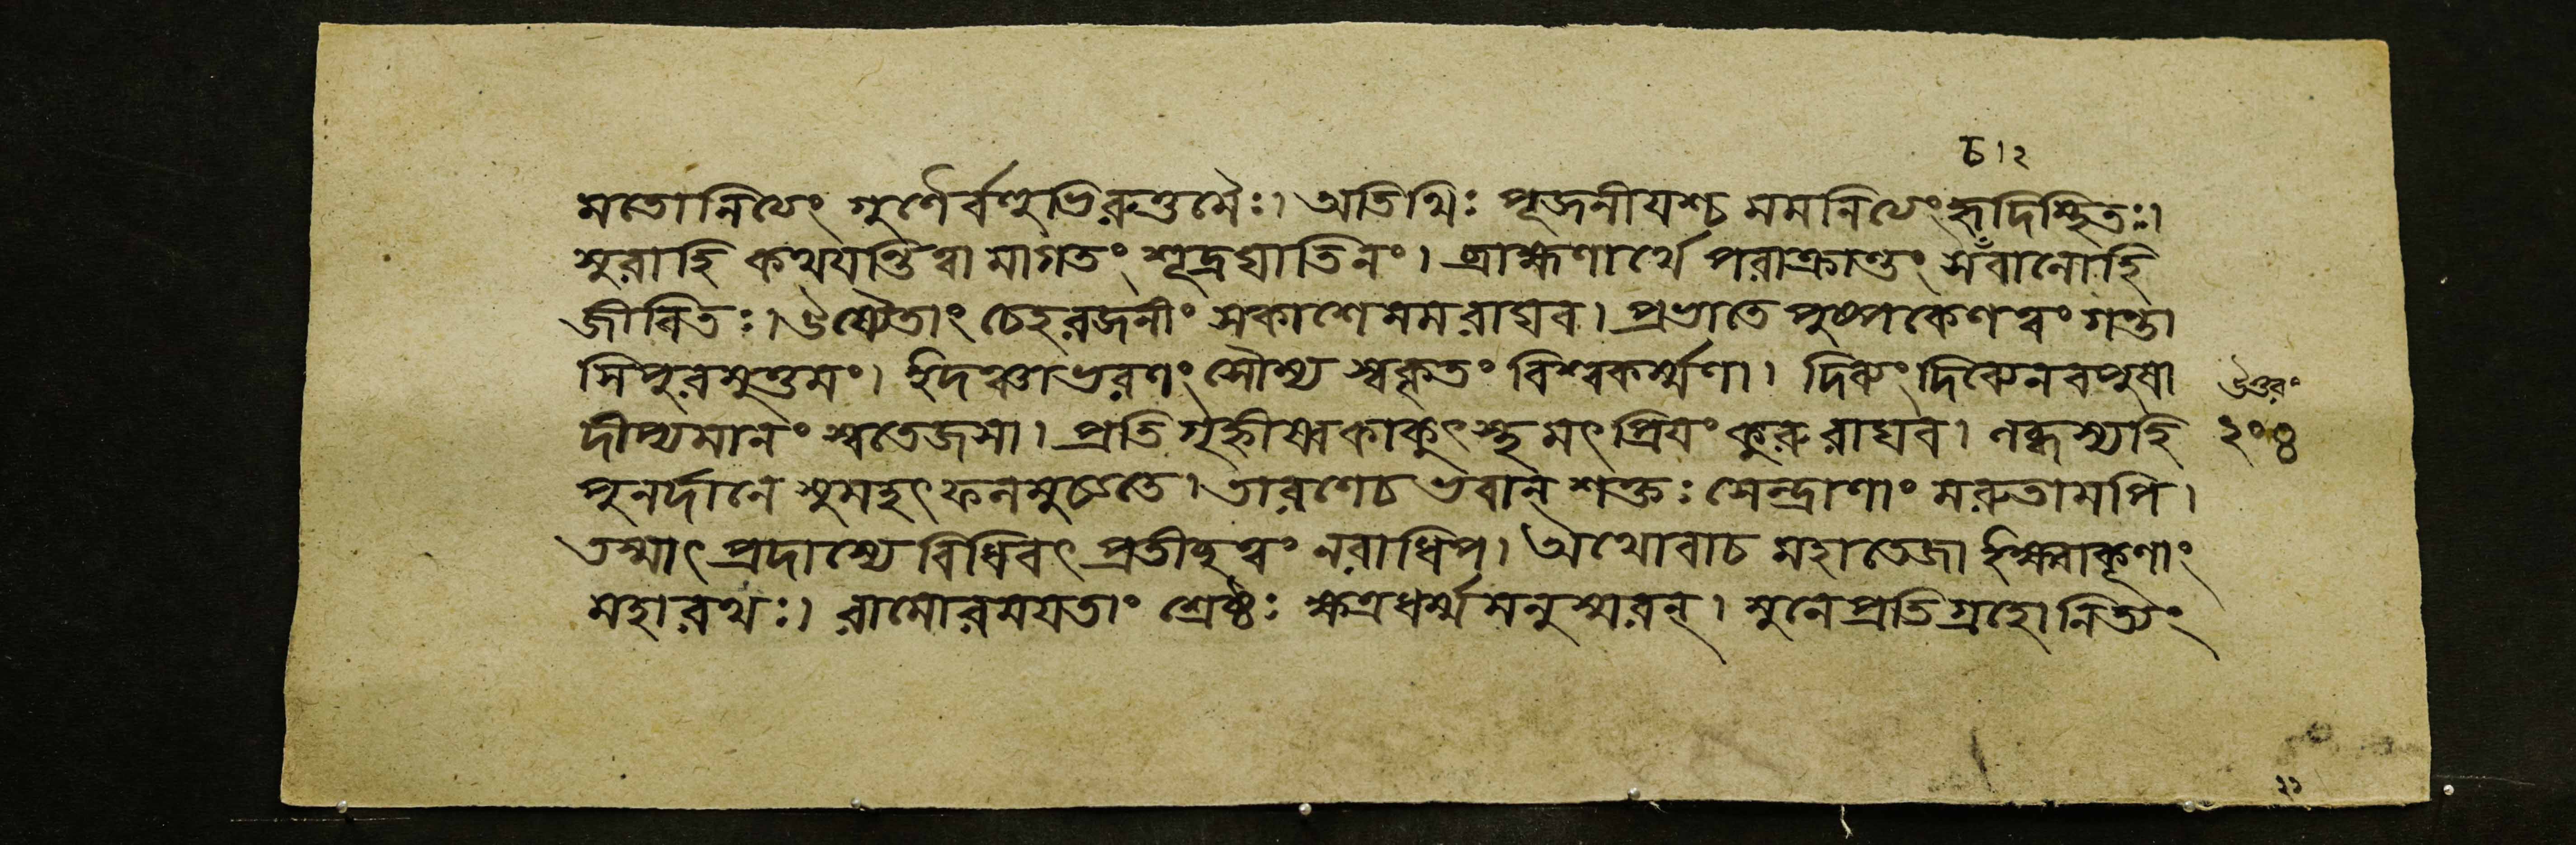 চ।২
মতোনিত্যং গুণৈর্বহুভিরুত্তমৈঃ। অতিথিঃ পূজনীযশ্চ মমনিত্যং হৃদিস্থিতঃ।
সুরাহি কথযন্তিত্বামাগতং শূদ্রঘাতিনং। ব্রাহ্মণার্থে পরাক্রান্তং সঁবালোহি
জীবিতঃ। উষ্যৈতাং চেহরজনীং সকাশেমমরাঘব। প্রভাতে পুষ্পকেণত্বং গন্তা
সিপুরমুত্তমং। ইদঞ্চাভরণং সৌম্য স্বকৃতং বিশ্বকর্ম্মণা। দিব্যং দিব্যেনবপুষা
উত্তরং
দীপ্যমানং স্বতেজসা। প্রতিগৃহ্নীষ্বকাকুৎস্থমৎপ্রিযং কুরুরাঘব। লব্ধস্যহি
২০৪
পুনর্দানে সুমহৎফলমুচ্যতে। তারণেচভবান্ শক্তঃ সেন্দ্রাণাং মরুতামপি।
তস্মাৎ প্রদাস্যে বিধিবৎ প্রতীচ্ছত্বং নরাধিপ। অথোবাচ মহাতেজা ইক্ষ্বাকূণাং
মহারথঃ। রামোরমযতাং শ্রেষ্ঠঃ ক্ষত্রধর্ম্মমনুস্মরন্। মুনেপ্রতিগ্রহোনিত্যং